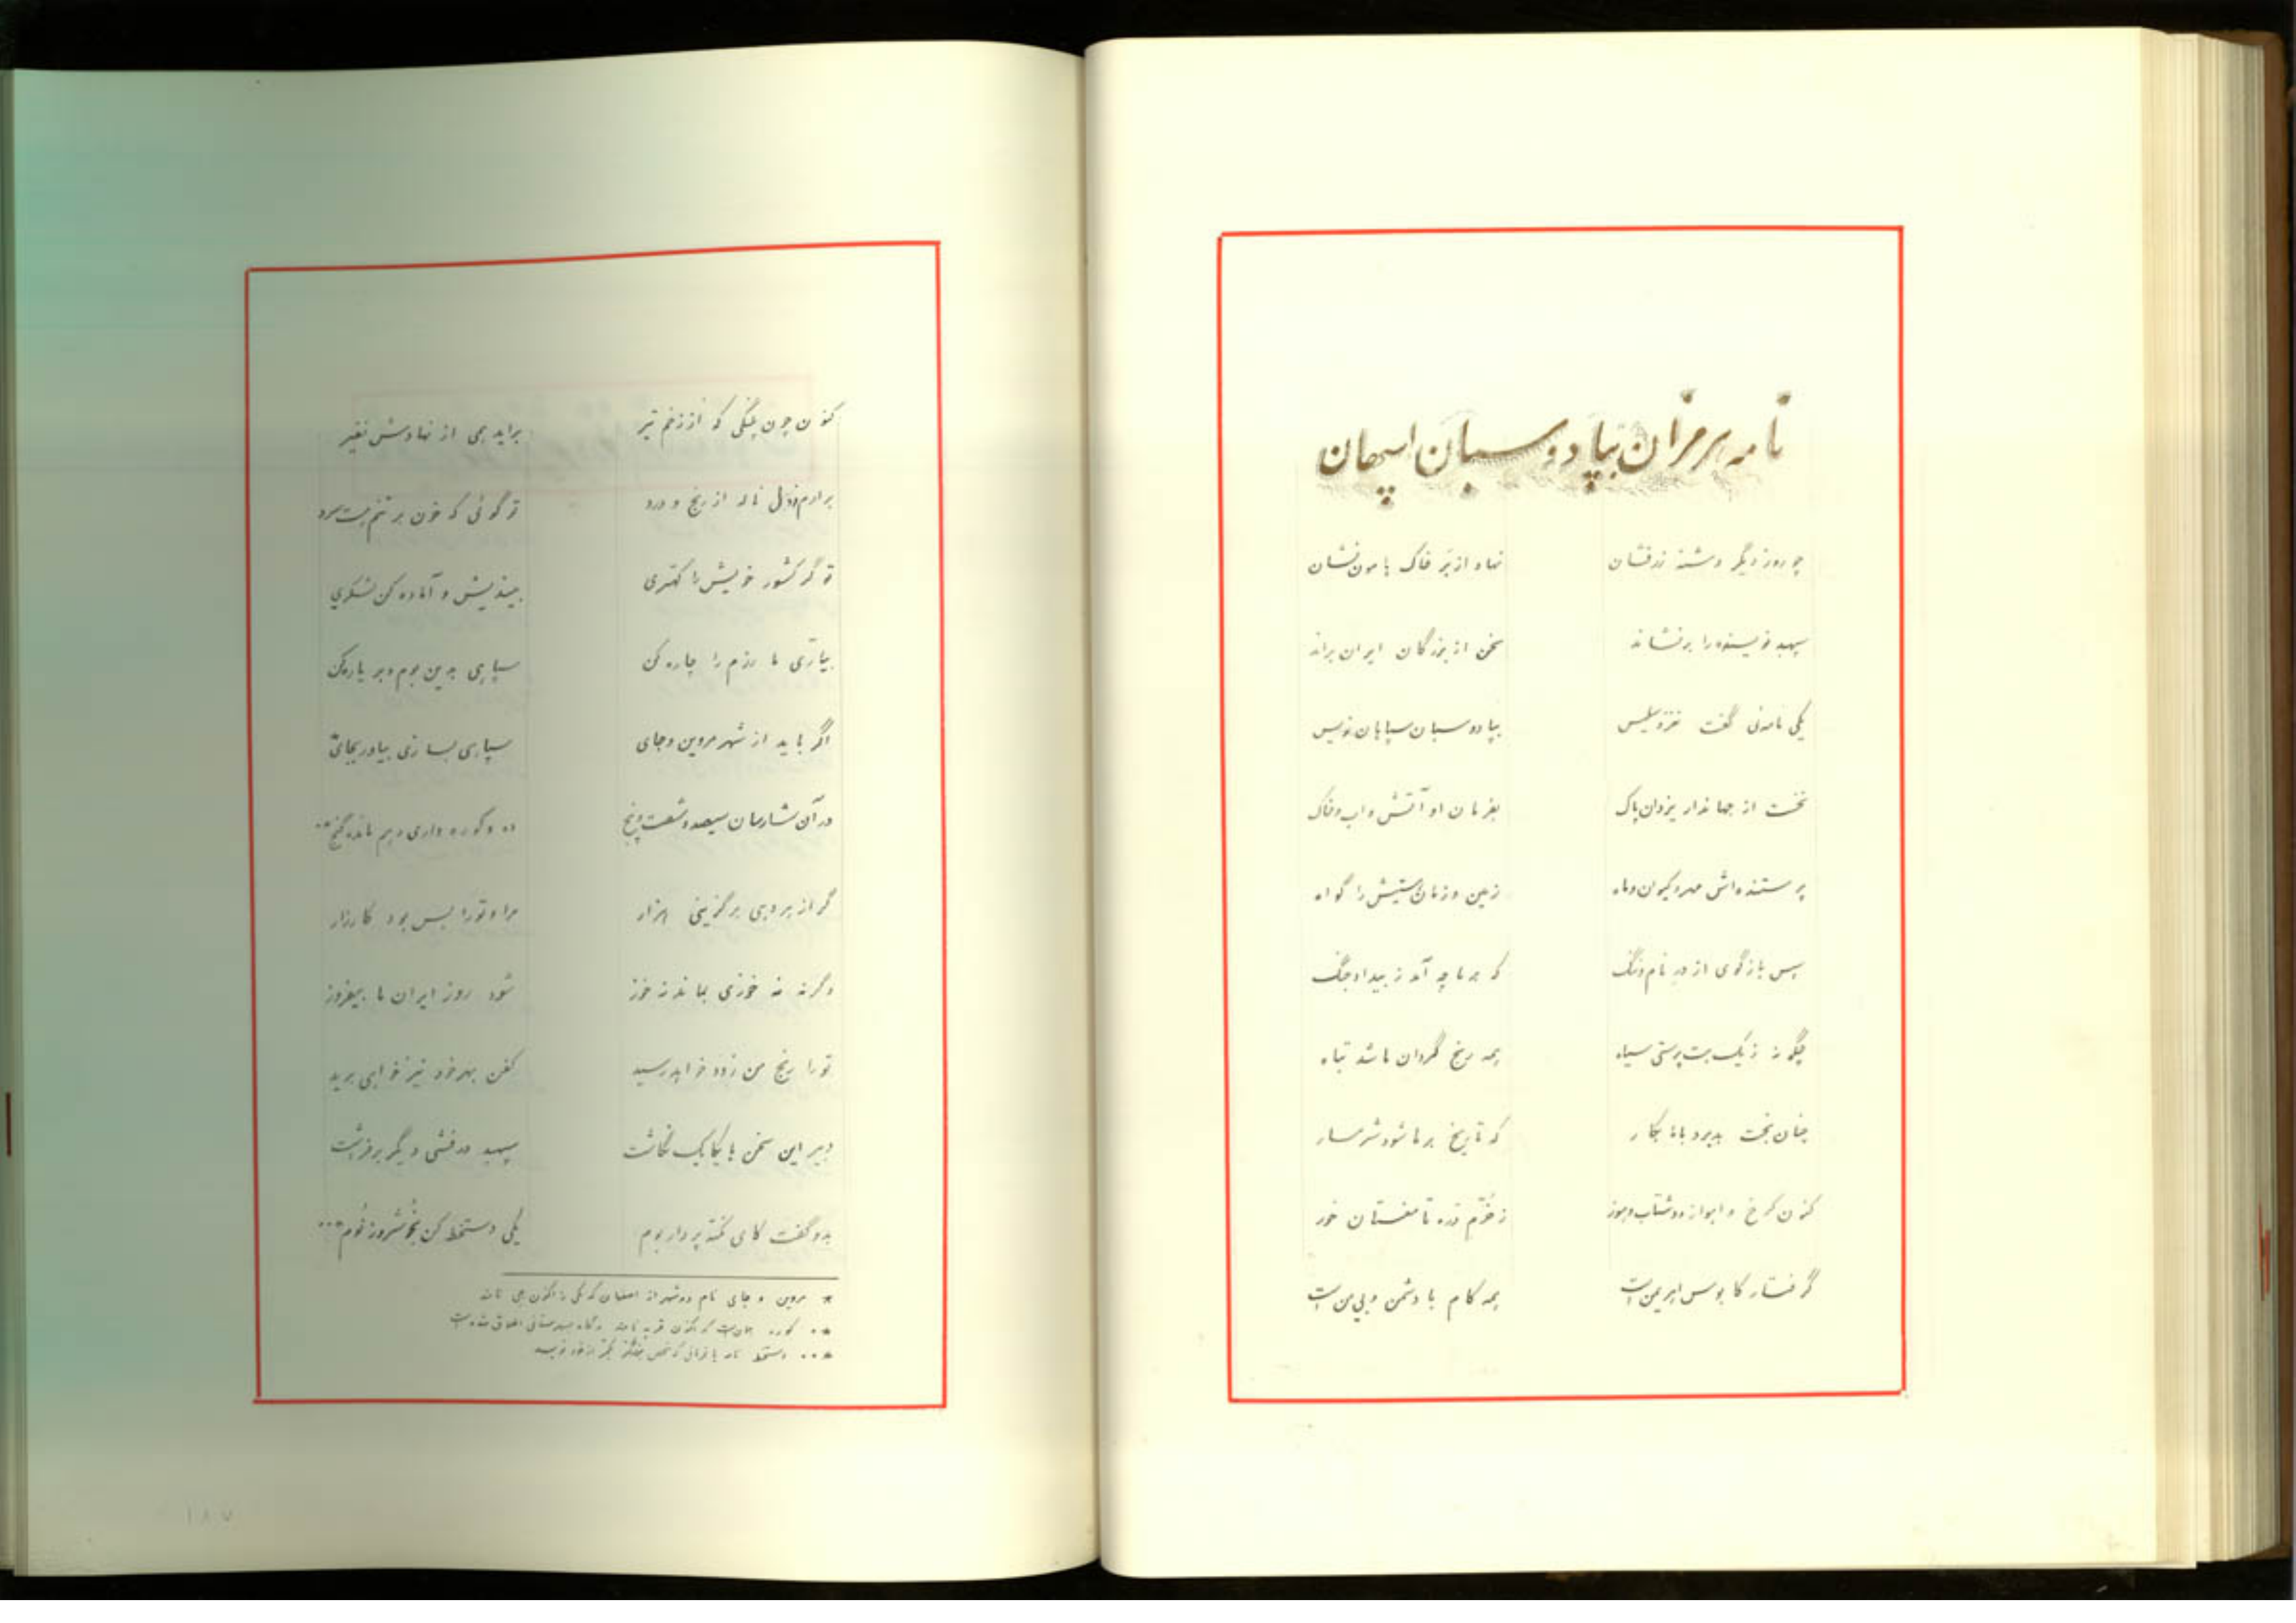 نامه هرمزان بپادوسبان اسپهان
چو روز دیگر دشنه زرفشان نهاد از بر خاک هامون نشان
سپهبد نویسنده را برنشاند سخن از بزرگان ایران براند
یکی نامه‌ئی گفت نغز و سلیس بپادوسبان سپاهان نویس
نخست از جهاندار یزدان پاک بفرمان او آتش و آب و خاک
پرستنده‌اش مهر و کیوان و ماه زمین و زمان هستیش را گواه
پس بازگوی از در نام و ننگ که بر ما چه آمد ز بیداد جنگ
چگونه ز یک بت پرستی سیاه همه رنج گردان ما شد تباه
چنان بخت بد برد با ما بکار که تاریخ بر ما شود شرمسار
کنون کرخ و اهواز و دشتاب و هوز ز خرّم دره تا مغستان خوز
گرفتار کابوس اهریمن است همه کام با دشمن و بی من است
کنون چون پلنگی که از زخم تیر براید همی از نهادش نفیر
برارم ز دل ناله از رنج و درد تو گوئی که خون بر تنم هست سرد
تو گر کشور خویش را کهتری بیندیش و آماده کن لشکری
بیاری ما رزم را چاره کن سپاهی بدین بوم و بر باره کن
اگر باید از شهر مروین و جای سپاهی بسازی بیاور بجای*
در آن شارسان سیصد و شصت و پنج ده و کوره داری و هم مانده گنج**
گر از هر دهی برگزینی هزار مرا و تو را بس بود کارزار
وگرنه نه خوزی بماند نه خوز شود روز ایران ما بیفروز
تو را رنج من زود خواهد رسید کفن بهر خود نیز خواهی برید
دبیر این سخن با یکایک نگاشت سپهبد درفشی دیگر برفراشت
بدو گفت کای نکته پرداز بوم یکی دستخط کن بخوشروز خوم***
* مروین و جای نام دو شهر از اصفهان که یکی را اکنون جی نامند
** کوره همان است که اکنون قریه نامند و گاه بشهرستانی اطلاق شده است
*** دستخط نامه یا فرمانی که شخص
۱۸۷